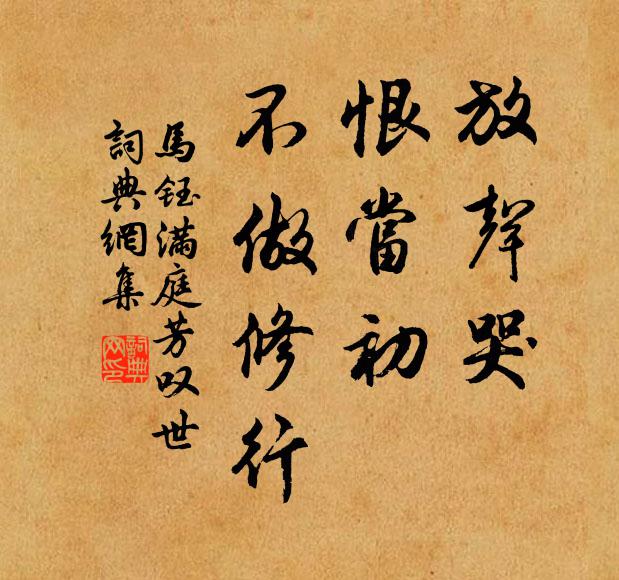 放聲哭
恨當初
不做修行
馬鈺滿庭芳叹世
詞典網集
詞典
网印